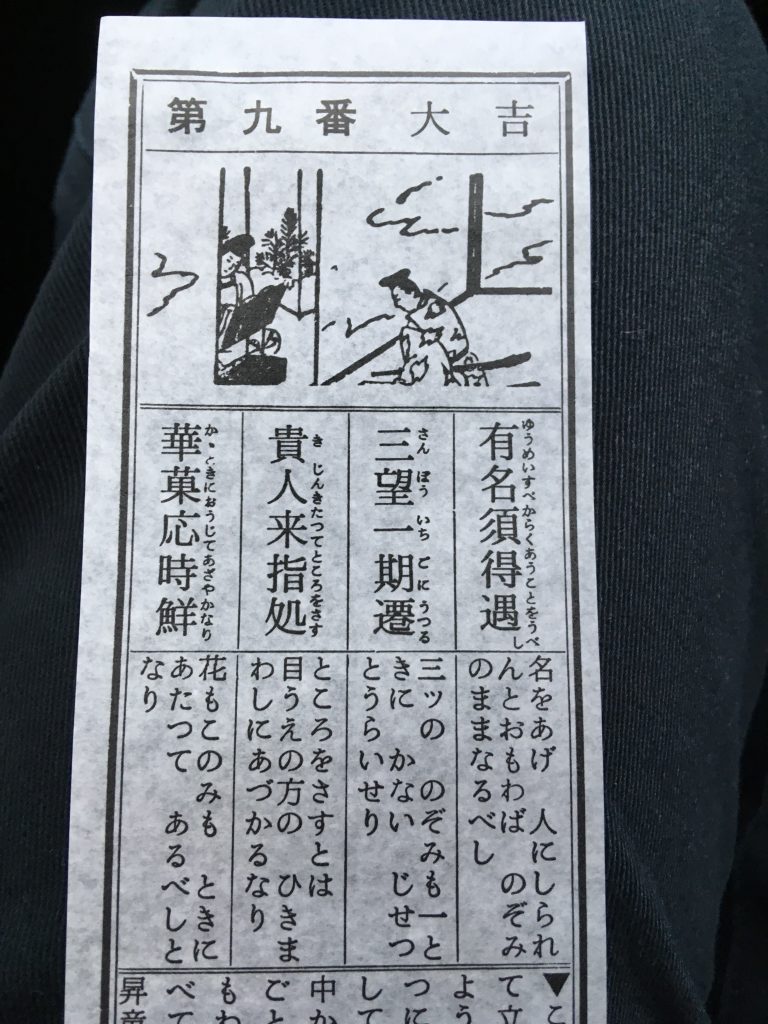 第九番 大吉
有名須得遇
ゆうめいすべからくあうことをうべし
三望一期遷
さんぼういちごにうつる
貴人来指処
きじんきたつてところをさす
華菓応時鮮
かゝときにおうじてあざやかなり
名をあげ 人にしられ
んとおもわば のぞみ
のままなるべし
三ッの のぞみも一と
きに かない じせつ
とうらいせり
ところをさすとは
目うえの方の ひきま
わしにあづかるなり
花もこのみも ときに
あたつて あるべしと
なり
▼こ
て立
よう
つに
して
中か
ごと
もわ
べて
昇竜